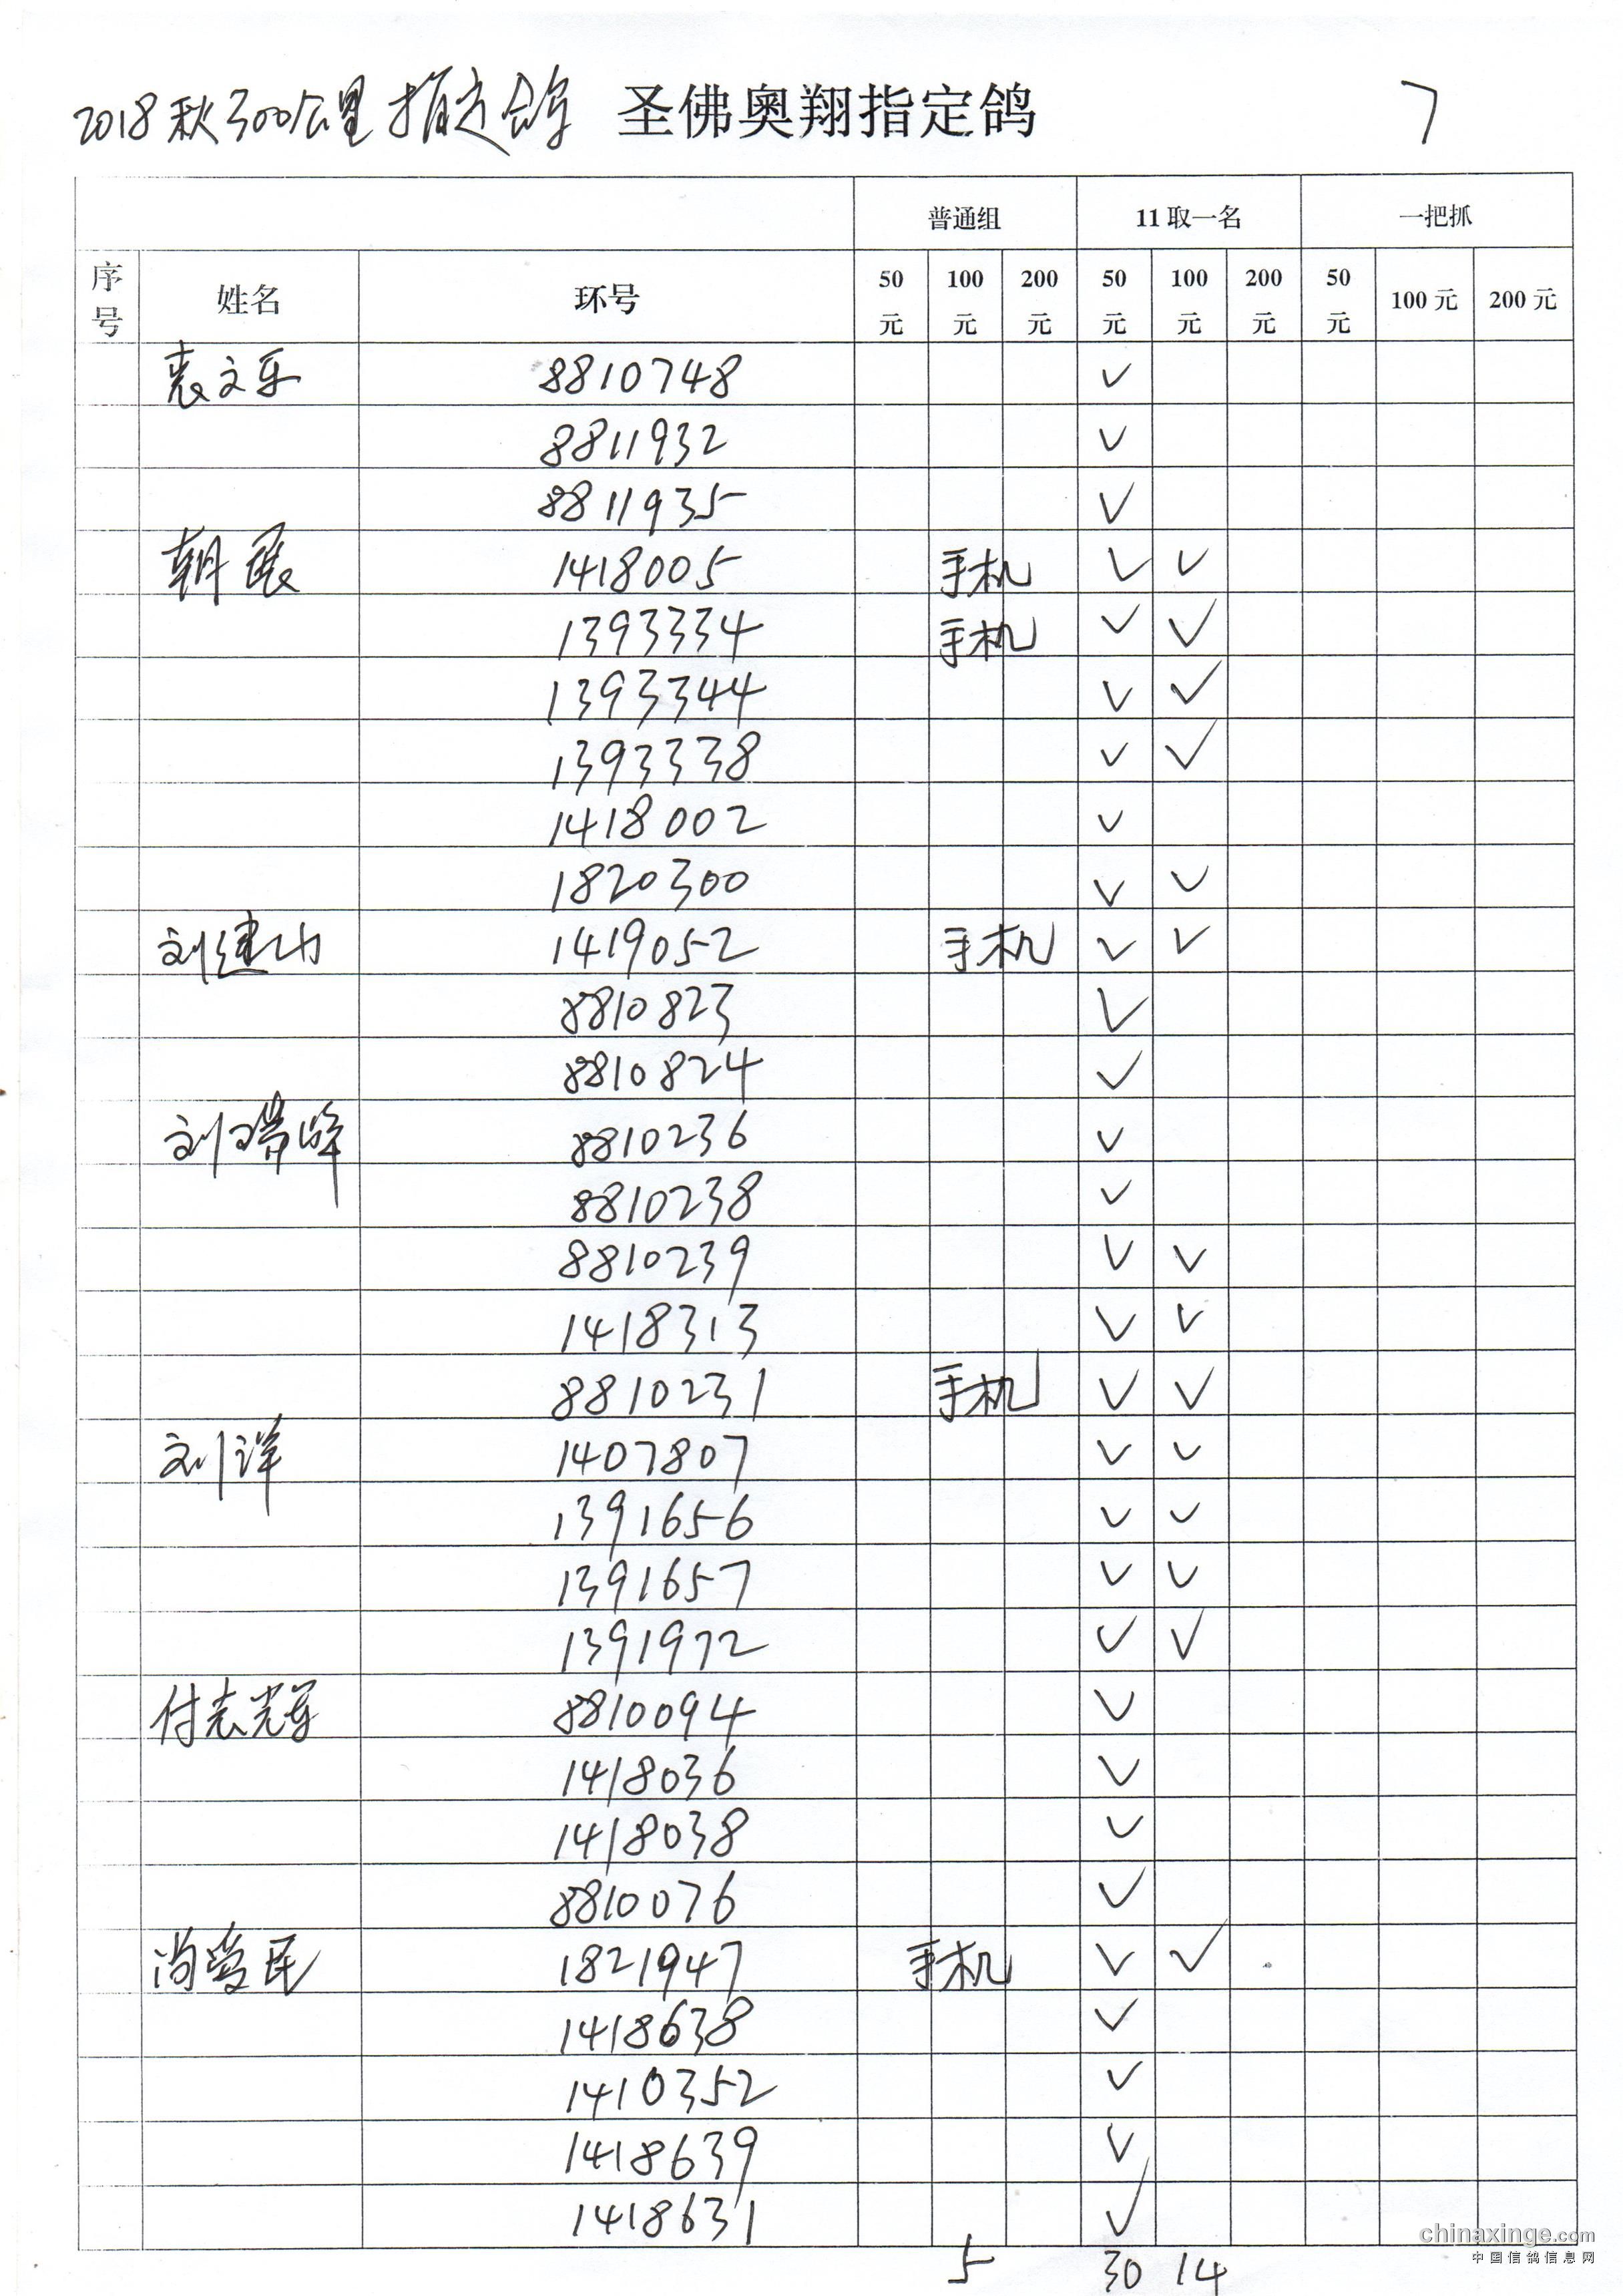 2018秋300公里指定鸽 圣佛奥翔指定鸽 7
普通组 11取一名 一把抓
序号 姓名 环号 50元 100元 200元 50元 100元 200元 50元 100元 200元
袁文乐 8810748 ✓
8811932 ✓
8811935 ✓
朝展 1418005 手机 ✓ ✓
1393334 手机 ✓ ✓
1393344 ✓ ✓
1393338 ✓ ✓
1418002 ✓
1820300 ✓ ✓
刘建 1419052 手机 ✓ ✓
8810823 ✓
8810824 ✓
刘瑞 8810236 ✓
8810238 ✓
8810239 ✓ ✓
1418313 ✓ ✓
8810231 手机 ✓ ✓
刘洋 1407807 ✓ ✓
1391656 ✓ ✓
1391657 ✓ ✓
1391972 ✓ ✓
付志辉 8810094 ✓
1418036 ✓
1418038 ✓
8810076 ✓
尚爱民 1821947 手机 ✓ ✓
1418638 ✓
1410352 ✓
1418639 ✓
1418631 ✓
5 30 14
chinaxinge.com
中国信鸽信息网